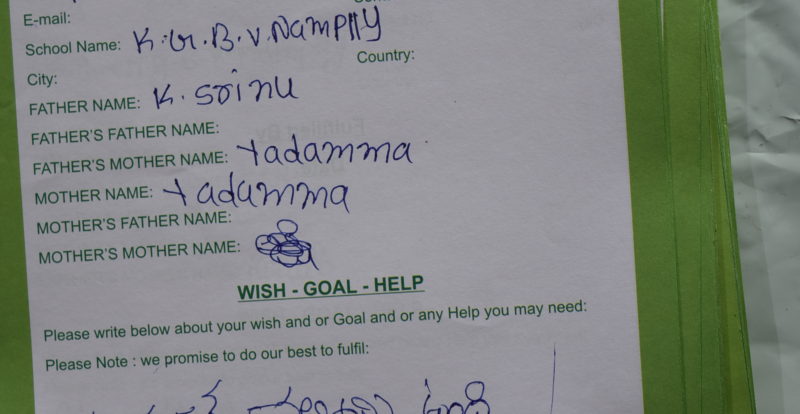 E-mail:
School Name: K.G.B.V.Namplly
City: Country:
FATHER NAME: K. Srinu
FATHER'S FATHER NAME:
FATHER'S MOTHER NAME: Yadamma
MOTHER NAME: Yadamma
MOTHER'S FATHER NAME:
MOTHER'S MOTHER NAME:
WISH - GOAL - HELP
Please write below about your wish and or Goal and or any Help you may need:
Please Note : we promise to do our best to fulfil: